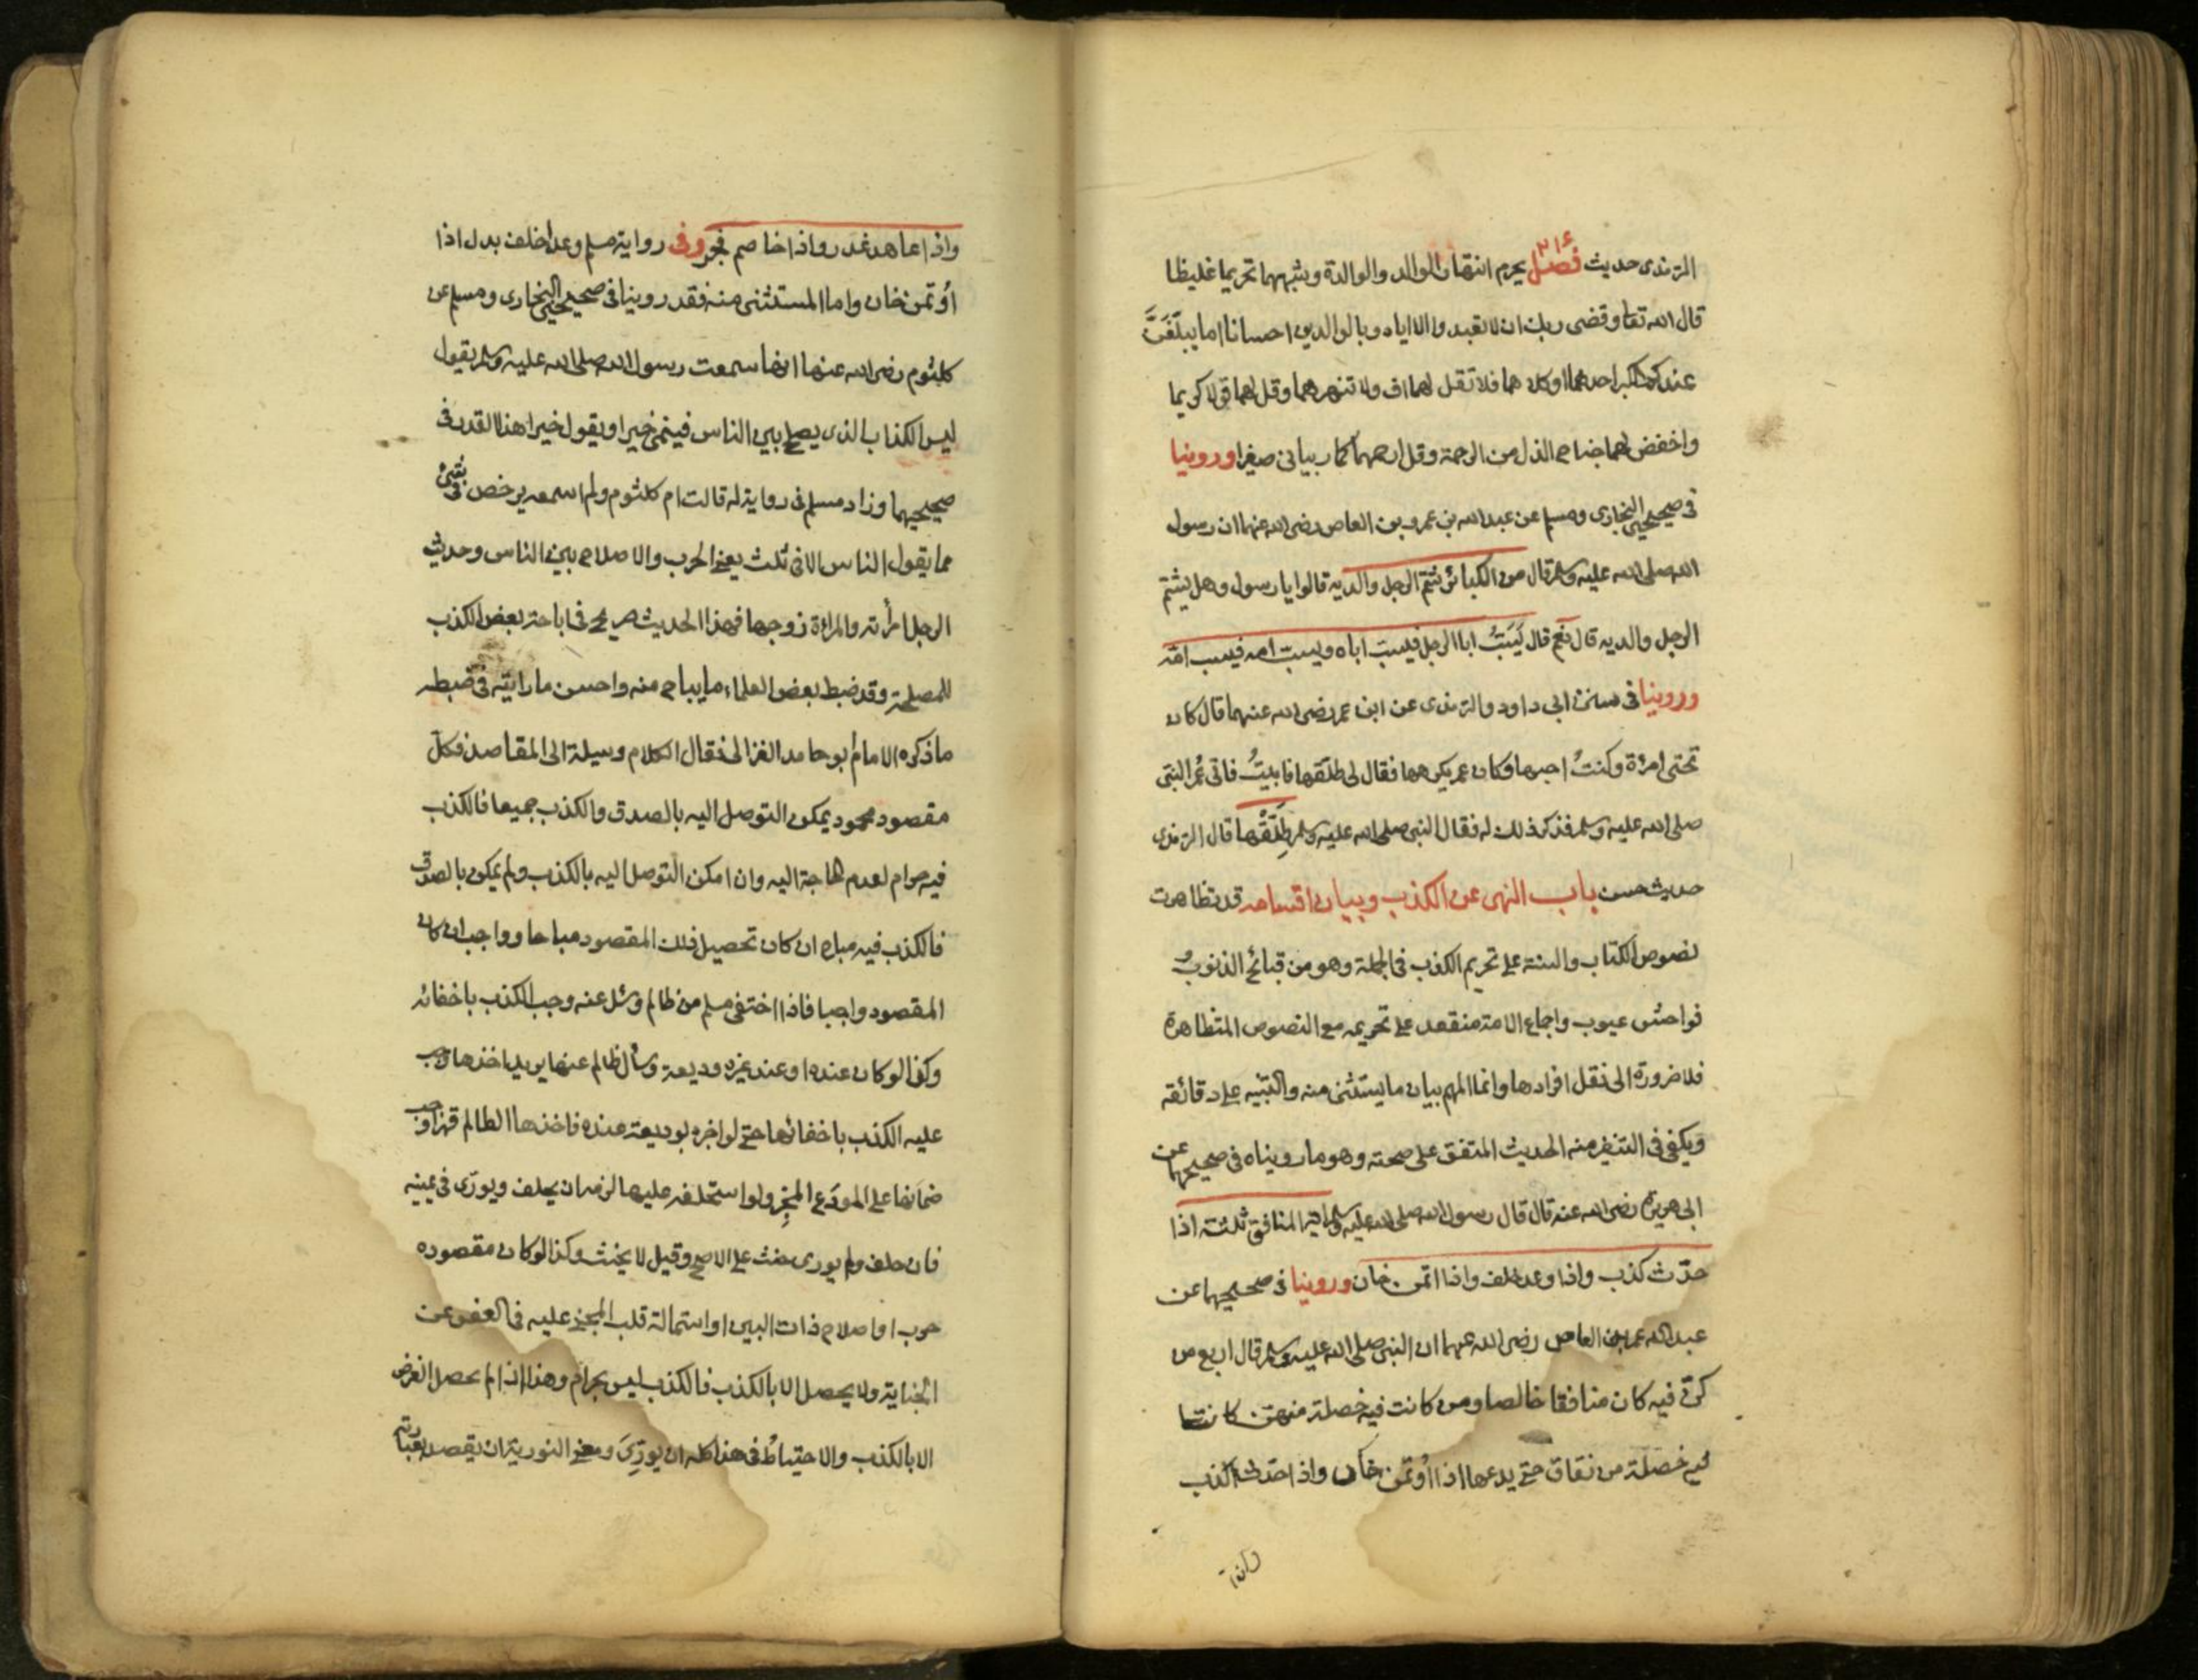 الترمذى حديث فصل ٢١٤ يحرم انتهار الوالد والوالدة وشبههما تحريما غليظا
قال الله تعا وقضى ربك ان لا تعبدوا الا اياه وبالوالدين احسانا اما يبلغنَّ
عندك الكبر احدهما او كلاهما فلا تقل لهما اف ولا تنهرهما وقل لهما قولا كريما
واخفض لهما جناح الذل من الرحمة وقل ارحمهما كما ربيانى صغيرا وروينا
فى صحيحى البخارى ومسلم عن عبد الله بن عمرو بن العاص رضى الله عنهما ان رسول
الله صلى الله عليه وسلم قال من الكبائر شتم الرجل والديه قالوا يا رسول وهل يشتم
الرجل والديه قال نعم قال يَسُبُّ ابا الرجل فيسب اباه ويسب امه فيسب امه
وروينا فى سنن ابى داود والترمذى عن ابن عمر رضى الله عنهما قال كان
تحتى امرأة وكنتُ احبها وكان عمر يكرهها فقال لى طلقها فابيتُ فاتى عُمر النبى
صلى الله عليه وسلم فذكر ذلك له فقال النبى صلى الله عليه وسلم طَلِّقْها قال الترمذى
حديث حسن باب النهى عن الكذب وبيان اقسامه قد تظاهرت
نصوص الكتاب والسنة على تحريم الكذب فى الجملة وهو من قبائح الذنوب و
فواحش عيوب واجماع الامة منقعد على تحريمه مع النصوص المتظاهرة
فلا ضرورة الى نقل افرادها وانما المهم بيان ما يستثنى منه والتنبيه على دقائقه
ويكفى فى التنفير منه الحديث المتفق على صحته وهو ما رويناه فى صحيحيهما عن
ابى هريرة رضى الله عنه قال قال رسول الله صلى الله عليه وسلم اية المنافق ثلثة اذا
حدّث كذب واذا وعد خلف واذا اتمن خان وروينا فى صحيحيهما عن
عبد الله عمر بن العاص رضى الله عنهما ان النبى صلى الله عليه وسلم قال اربع من
كنّ فيه كان منافقا خالصا ومن كانت فيه خصلة منهن كانت
فيه خصلة من نفاق حتى يدعها اذا اُوتمن خان واذا حدث كذب
واذا
واذا عاهد غدر واذا خاصم فجر وفى رواية مسلم وعد اخلف بدل اذا
اُوتمن خان واما المستثنى منه فقد روينا فى صحيحى البخارى ومسلم عن
كلثوم رضى الله عنها انها سمعت رسول الله صلى الله عليه وسلم يقول
ليس الكذاب الذى يصلح بين الناس فينمى خيرا او يقول خيرا هذا القدر فى
صحيحيهما وزاد مسلم فى رواية له قالت ام كلثوم ولم اسمعه يرخص فى شئ
مما يقول الناس الا فى ثلث يعنى الحرب والاصلاح بين الناس وحديث
الرجل امرأته والمراءة زوجها فهذا الحديث صريح فى اباحة بعض الكذب
للمصلحة وقد ضبط بعض العلماء ما يباح منه واحسن ما رايته فى ضبطه
ما ذكره الامام ابو حامد الغزالى فقال الكلام وسيلة الى المقاصد فكلّ
مقصود محمود يمكن التوصل اليه بالصدق والكذب جميعا فالكذب
فيه حرام لعدم الحاجة اليه وان امكن التوصل اليه بالكذب ولم يمكن بالصدق
فالكذب فيه مباح ان كان تحصيل ذلك المقصود مباحا وواجب ان كان
المقصود واجبا فاذا اختفى مسلم من ظالم وسئل عنه وجب الكذب باخفائه
وكذا لو كان عنده او عند غيره وديعة وسأل ظالم عنها يريد اخذها وجب
عليه الكذب باخفائها حتى لو اخبره بوديعة عنده فاخذها الظالم قهرا وجب
ضمانها على المودَع المخبِر ولو استحلفه عليها لزمه ان يحلف ويورّى فى يمينه
فان حلف ولم يورى حنث على الاصح وقيل لا يحنث وكذا لو كان مقصوده
حرب او اصلاح ذات البين او استمالة قلب المجنى عليه فى العفو عن
الجناية ولا يحصل الا بالكذب فالكذب ليس بحرام وهذا اذا لم يحصل الغرض
الا بالكذب والاحتياطُ فى هذا كله ان يورِّىَ ومعنى التورية ان يقصد بعبارته